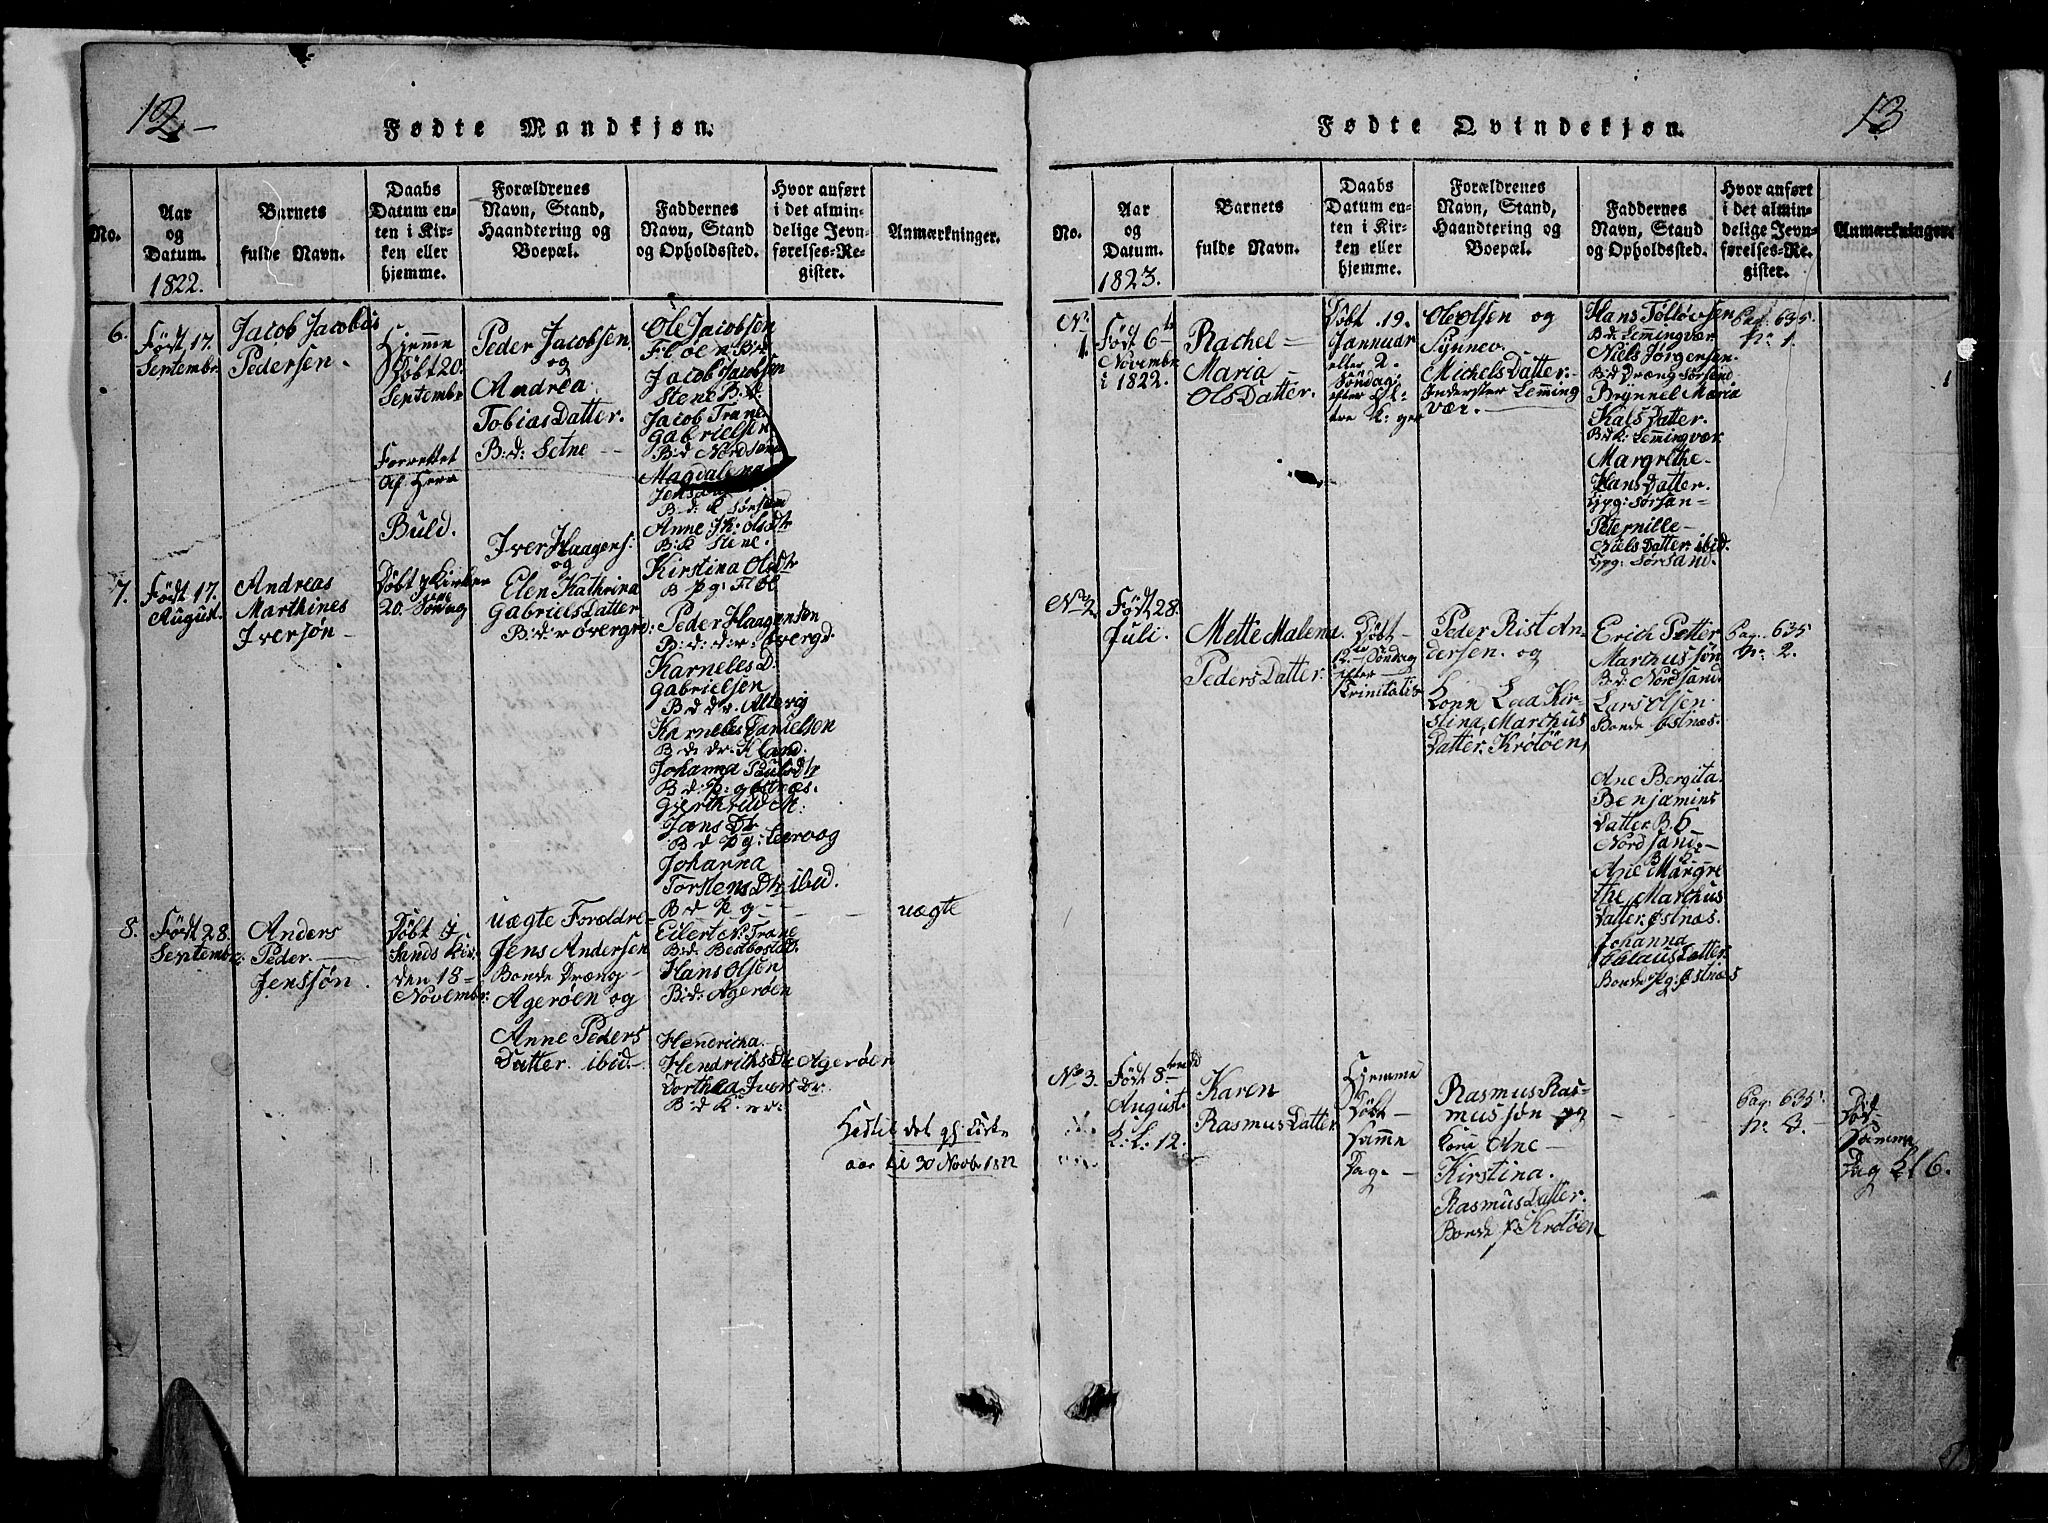 12
Fødte Mandkjøn.
No.
Aar
og
Datum.
1822.
Barnets
fulde Navn.
Daabs
Datum en-
ten i Kir-
ken eller
hjemme.
Forældrenes
Navn, Stand,
Haandtering og
Boepæl.
Faddernes
Navn, Stand
og Opholdssted.
Hvor anført
i det almin-
delige Jevn-
førelses-Re-
gister.
Anmærkninger.
6.
Født 17.
Septembr
Jacob Jacobus
Pedersen.
Hjemme
Døbt 20.
Septembr
Forrettet
af Herr
Buld.
Peder Jacobsen
og
Andrea
Tobias Datter.
B: d: Setne
Ole Jacobsen
Fløen B: d
Jacob Jacobsen
Stene B: d:
Jacob Trane
Gabrielsen
B: d Nordsand
Magdalena
B: d: K Sørsand
Anne Kh: Olsdtr
B: K Stine.
Kirstina Olsdtr
B Pg: Fløe
7.
Født 17.
August.
Andreas
Marthines
Iversøn
Døbt i Kirken
20. Søndag
Iver Haagens:
og
Elen Kathrina
Gabriels Datter
B: d: v Øvergrd:
Peder Haagensøn
B: d: dr: Øvergd.
Karneles D:
Gabrielsen
B d dr. Altevig
Karneles Danielsen
B d: dr: Kland.
Johanna Paulsdtr
B: d: P: Østnæs.
Gjerthrud M:
Jæns Dtr
B d Pg: Leervog
Johanna
Torstens Dtr ibid.
B d P g
8.
Født 28.
Septembr.
Anders
Peder
Jenssøn.
Døbt i
Sands Kir.
den 18
Novembr:
uægte Forældre
Jens Andersen
Bonde Dræng
Agerøen og
Anne Peders
Datter ibid.
Eilert N: Trane
B: d: Bedbostad.
Hans Olsøn
B: d: Agerøen
Hendricha
Hendrichs Dtr Agerøen
Dorthea Ivers Dr.
B: d K: er:
uægte
det gl: Kirke
aar til 30 Novbr 1822
13
Fødte Qvindekjøn.
No.
Aar
og
Datum.
1823.
Barnets
fulde Navn.
Daabs
Datum en-
ten i Kir-
ken eller
hjemme.
Forældrenes
Navn, Stand,
Haandtering og
Boepæl.
Faddernes
Navn, Stand
og Opholdssted.
Hvor anført
i det almin-
delige Jevn-
førelses-Re-
gister.
Anmærkninger.
No
1.
Født 6te
Novembr
i 1822.
Rachel
Maria
Ols Datter.
Døbt 19.
Jannuar
eller 2.
Søndag
efter H: K:
Ole Olsen og
Synnev
Michels Datter.
Inderster Lemming
vær.
Hans Tolløvsen
B: d: Lemmingvær
Niels Jørgensen
B: d Dræng Sørsand
Brynnel Maria
Kals Datter.
B: d K: Lemmingvær
Margrethe
Hans Datter.
Pg: Sørsan-
Peternille
Niels Datter ibid.
Pg: Sørsand.
Pag: 635.
No 1.
No 2.
Født 28.
Juli.
Mette Malena
Peders Datter.
Døbt
12te Søndag
efter
Trinitatis
Peder Rist An-
dersen. og
Kone Lea Kir-
stina Marchus
Datter. Krøtøen
Erich Petter
Marchussøn
B: d: Nordsand
Lars Olsen
Bonde Østnæs.
Ane Bergita
Benjamins
Datter B: d
Nordsand.
Ane Margre
the Marchus
Datter Østnæs.
Johanna
Claus Datter
Bonde Pg: Østnæs
Pag. 635
No. 2.
No 3.
Født 8tende
August.
K: l: 12.
Karen
Rasmus Datter
Hjemme
Døbt
Samme
Dag
Rasmus Ras-
mussøn og
Kone Ane
Kirstina.
Rasmus Datter.
Bonde p: Krøtøen
Pag: 635.
No. 3.
Død
Samme
Dag Kl 6.